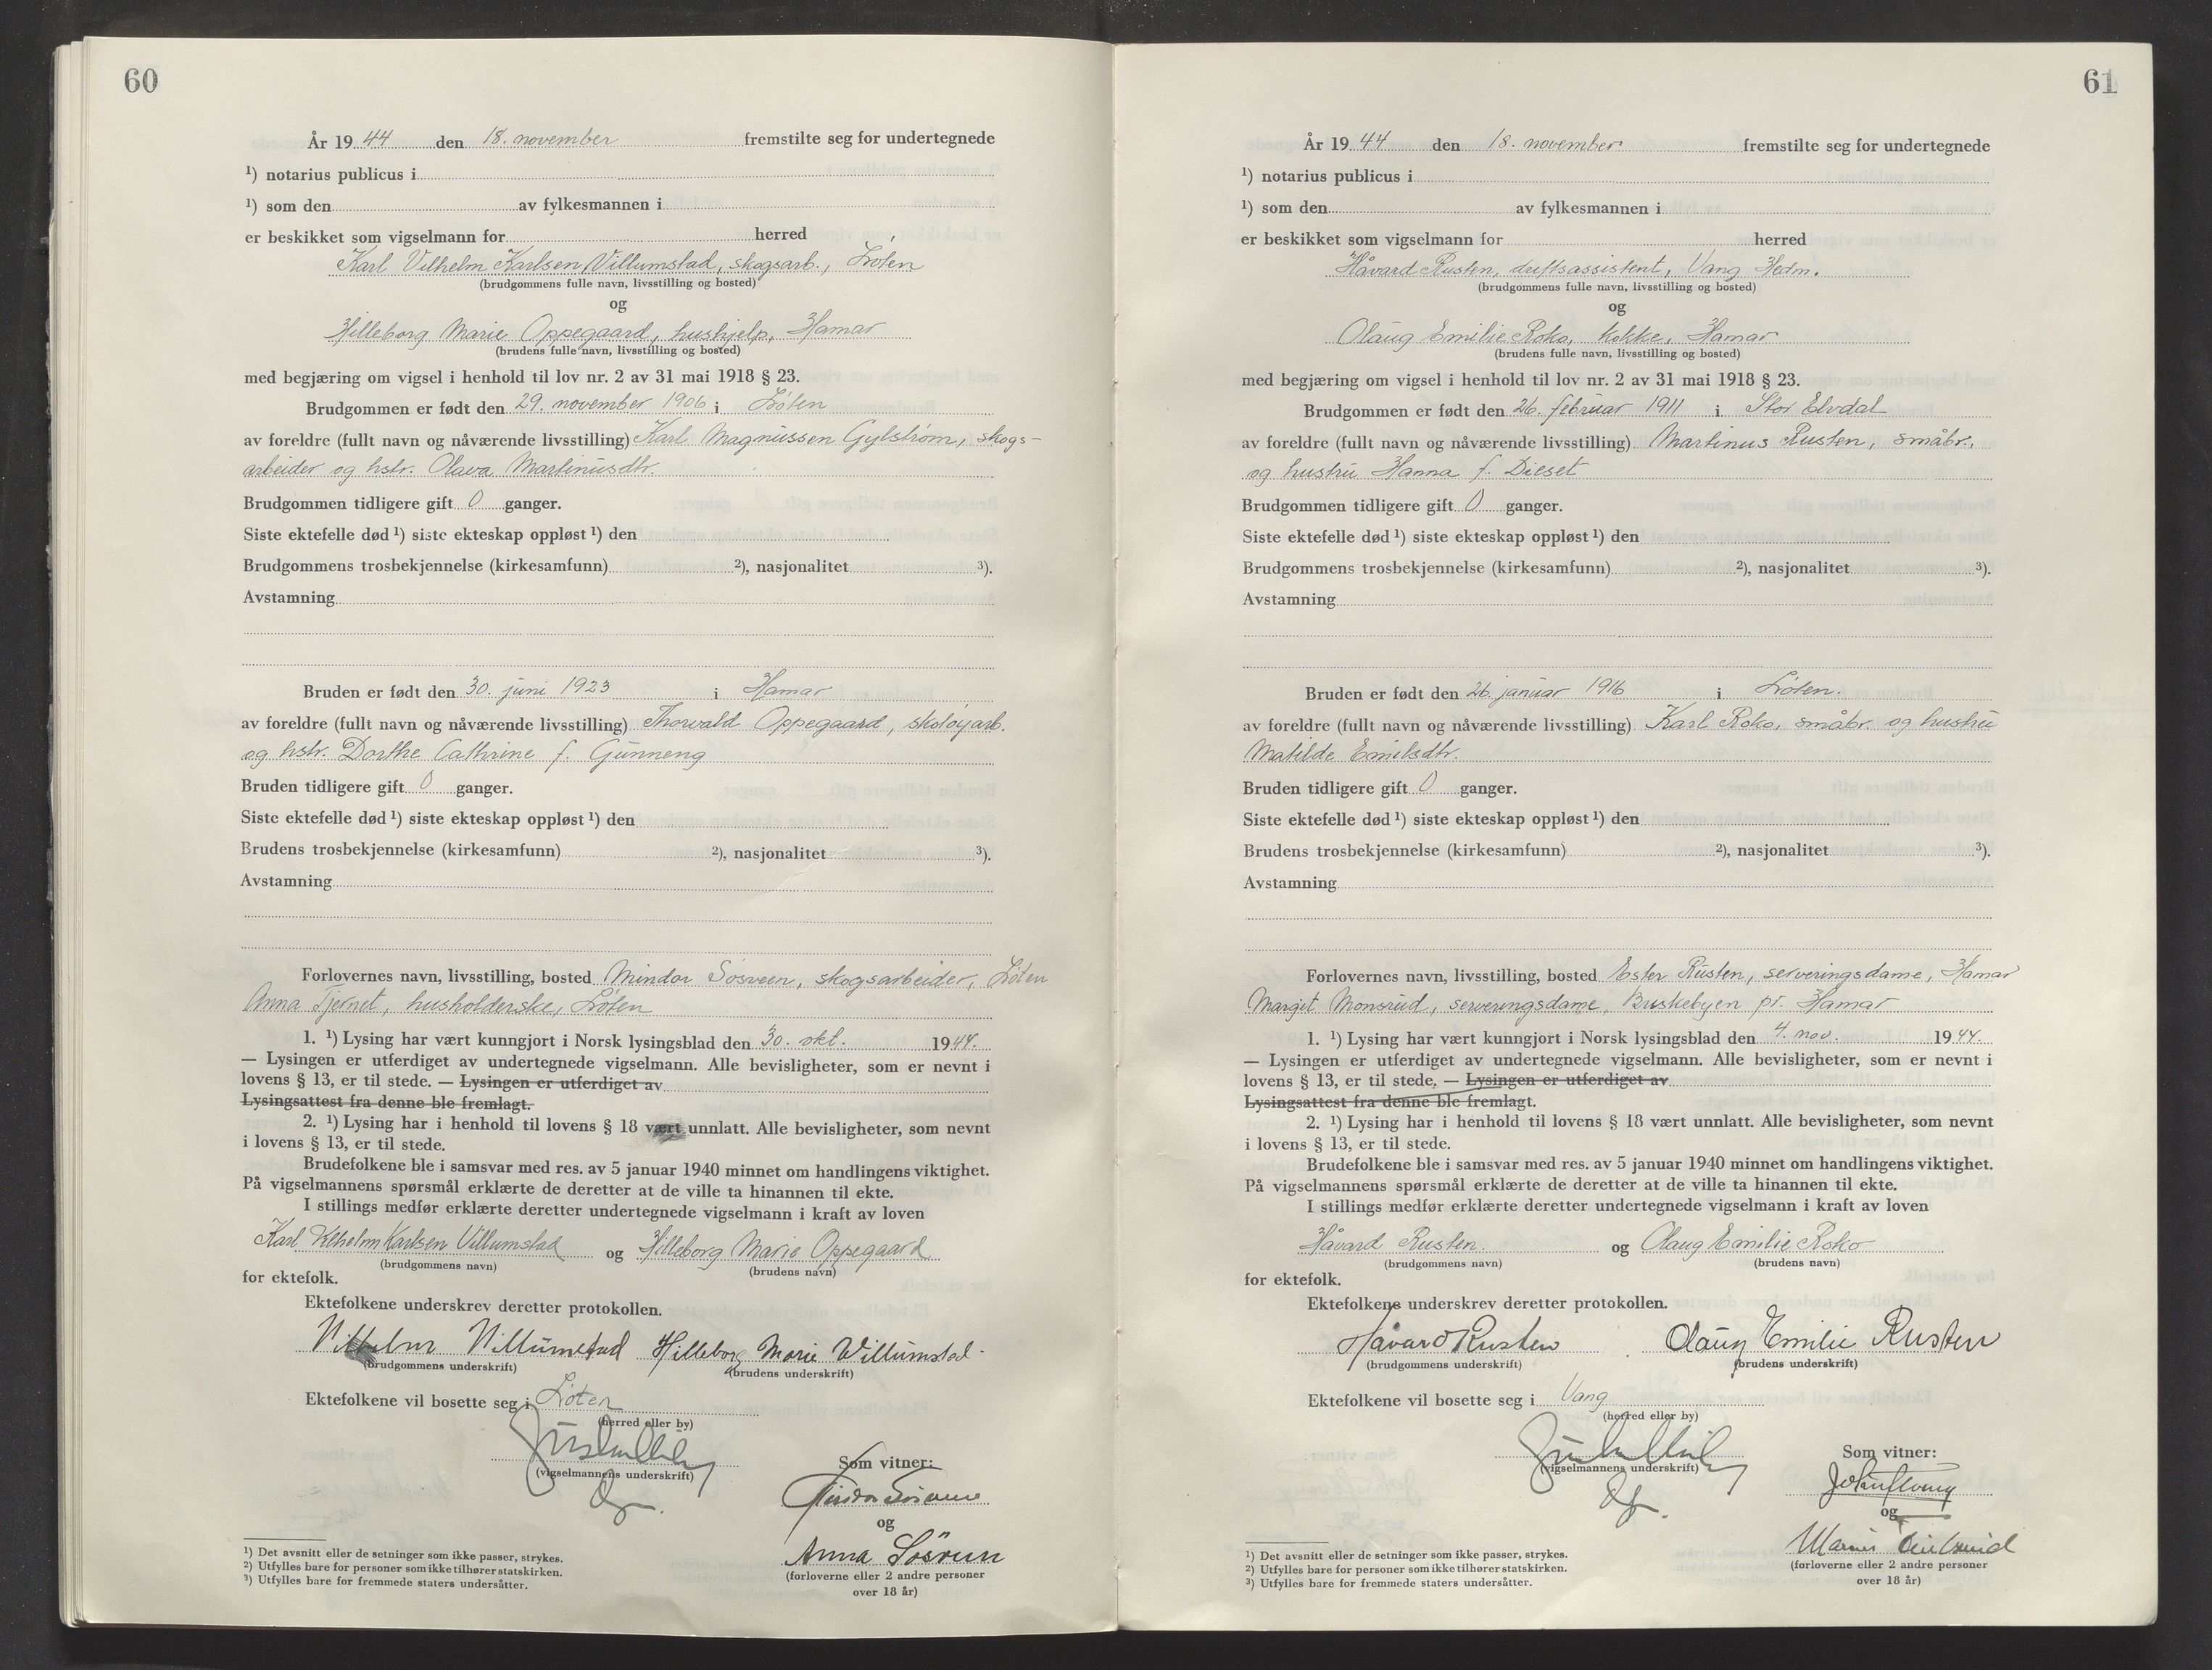 60
År 1944 den 18. november fremstilte seg for undertegnede
¹) notarius publicus i
¹) som den av fylkesmannen i
er beskikket som vigselmann for herred
Karl Vilhelm Karlsen Villumstad, skogsarb., Løten
(brudgommens fulle navn, livsstilling og bosted)
og
Hilleborg Marie Oppegaard, hushjelp, Hamar
(brudens fulle navn, livsstilling og bosted)
med begjæring om vigsel i henhold til lov nr. 2 av 31 mai 1918 § 23.
Brudgommen er født den 29. november 1906 i Løten
av foreldre (fullt navn og nåværende livsstilling) Karl Magnussen Gylstrøm, skogs-
arbeider og hstr. Olava Martinusdtr.
Brudgommen tidligere gift 0 ganger.
Siste ektefelle død ¹) siste ekteskap oppløst ¹) den
Brudgommens trosbekjennelse (kirkesamfunn) ²), nasjonalitet ³).
Avstamning
Bruden er født den 30. juni 1923 i Hamar
av foreldre (fullt navn og nåværende livsstilling) Thorvald Oppegaard, skotøyarb.
og hstr. Dorthe Cathrine f. Gunneng
Bruden tidligere gift 0 ganger.
Siste ektefelle død ¹) siste ekteskap oppløst ¹) den
Brudens trosbekjennelse (kirkesamfunn) ²), nasjonalitet ³).
Avstamning
Forlovernes navn, livsstilling, bosted Mindor Søsveen, skogsarbeider, Løten
Anna Tjernet, husholderske, Løten
1. ¹) Lysing har vært kunngjort i Norsk lysingsblad den 30. okt. 1944.
— Lysingen er utferdiget av undertegnede vigselmann. Alle bevisligheter, som er nevnt i
lovens § 13, er til stede. — Lysingen er utferdiget av
Lysingsattest fra denne ble fremlagt.
2. ¹) Lysing har i henhold til lovens § 18 vært unnlatt. Alle bevisligheter, som nevnt
i lovens § 13, er til stede.
Brudefolkene ble i samsvar med res. av 5 januar 1940 minnet om handlingens viktighet.
På vigselmannens spørsmål erklærte de deretter at de ville ta hinannen til ekte.
I stillings medfør erklærte deretter undertegnede vigselmann i kraft av loven
Karl Vilhelm Karlsen Villumstad og Hilleborg Marie Oppegaard
(brudgommens navn) (brudens navn)
for ektefolk.
Ektefolkene underskrev deretter protokollen.
Vilhelm Villumstad Hilleborg Marie Willumstad.
(brudgommens underskrift) (brudens underskrift)
Ektefolkene vil bosette seg i Løten
(herred eller by)
(vigselmannens underskrift)
Som vitner:
og
Anna Søsveen
(forloverne eller 2 andre personer
over 18 år)
¹) Det avsnitt eller de setninger som ikke passer, strykes.
²) Utfylles bare for personer som ikke tilhører statskirken.
³) Utfylles bare for fremmede staters undersåtter.
61
År 1944 den 18. november fremstilte seg for undertegnede
¹) notarius publicus i
¹) som den av fylkesmannen i
er beskikket som vigselmann for herred
Håvard Rusten, driftsassistent, Vang Hedm.
(brudgommens fulle navn, livsstilling og bosted)
og
Olaug Emilie Roko, kokke, Hamar
(brudens fulle navn, livsstilling og bosted)
med begjæring om vigsel i henhold til lov nr. 2 av 31 mai 1918 § 23.
Brudgommen er født den 26. februar 1911 i Stor Elvdal
av foreldre (fullt navn og nåværende livsstilling) Martinus Rusten, småbr.,
og hustru Hanna f. Dieset
Brudgommen tidligere gift 0 ganger.
Siste ektefelle død ¹) siste ekteskap oppløst ¹) den
Brudgommens trosbekjennelse (kirkesamfunn) ²), nasjonalitet ³).
Avstamning
Bruden er født den 26. januar 1916 i Løten.
av foreldre (fullt navn og nåværende livsstilling) Karl Roko, småbr. og hustru
Matilde Emilsdtr.
Bruden tidligere gift 0 ganger.
Siste ektefelle død ¹) siste ekteskap oppløst ¹) den
Brudens trosbekjennelse (kirkesamfunn) ²), nasjonalitet ³).
Avstamning
Forlovernes navn, livsstilling, bosted Ester Rusten, serveringsdame, Hamar
Margit Monsrud, serveringsdame, Briskebyen pr. Hamar
1. ¹) Lysing har vært kunngjort i Norsk lysingsblad den 4. nov. 1944.
— Lysingen er utferdiget av undertegnede vigselmann. Alle bevisligheter, som er nevnt i
lovens § 13, er til stede. — Lysingen er utferdiget av
Lysingsattest fra denne ble fremlagt.
2. ¹) Lysing har i henhold til lovens § 18 vært unnlatt. Alle bevisligheter, som nevnt
i lovens § 13, er til stede.
Brudefolkene ble i samsvar med res. av 5 januar 1940 minnet om handlingens viktighet.
På vigselmannens spørsmål erklærte de deretter at de ville ta hinannen til ekte.
I stillings medfør erklærte deretter undertegnede vigselmann i kraft av loven
Håvard Rusten. og Olaug Emilie Roko
(brudgommens navn) (brudens navn)
for ektefolk.
Ektefolkene underskrev deretter protokollen.
Håvard Rusten Olaug Emilie Rusten
(brudgommens underskrift) (brudens underskrift)
Ektefolkene vil bosette seg i Vang
(herred eller by)
(vigselmannens underskrift)
Som vitner:
og
(forloverne eller 2 andre personer
over 18 år)
¹) Det avsnitt eller de setninger som ikke passer, strykes.
²) Utfylles bare for personer som ikke tilhører statskirken.
³) Utfylles bare for fremmede staters undersåtter.